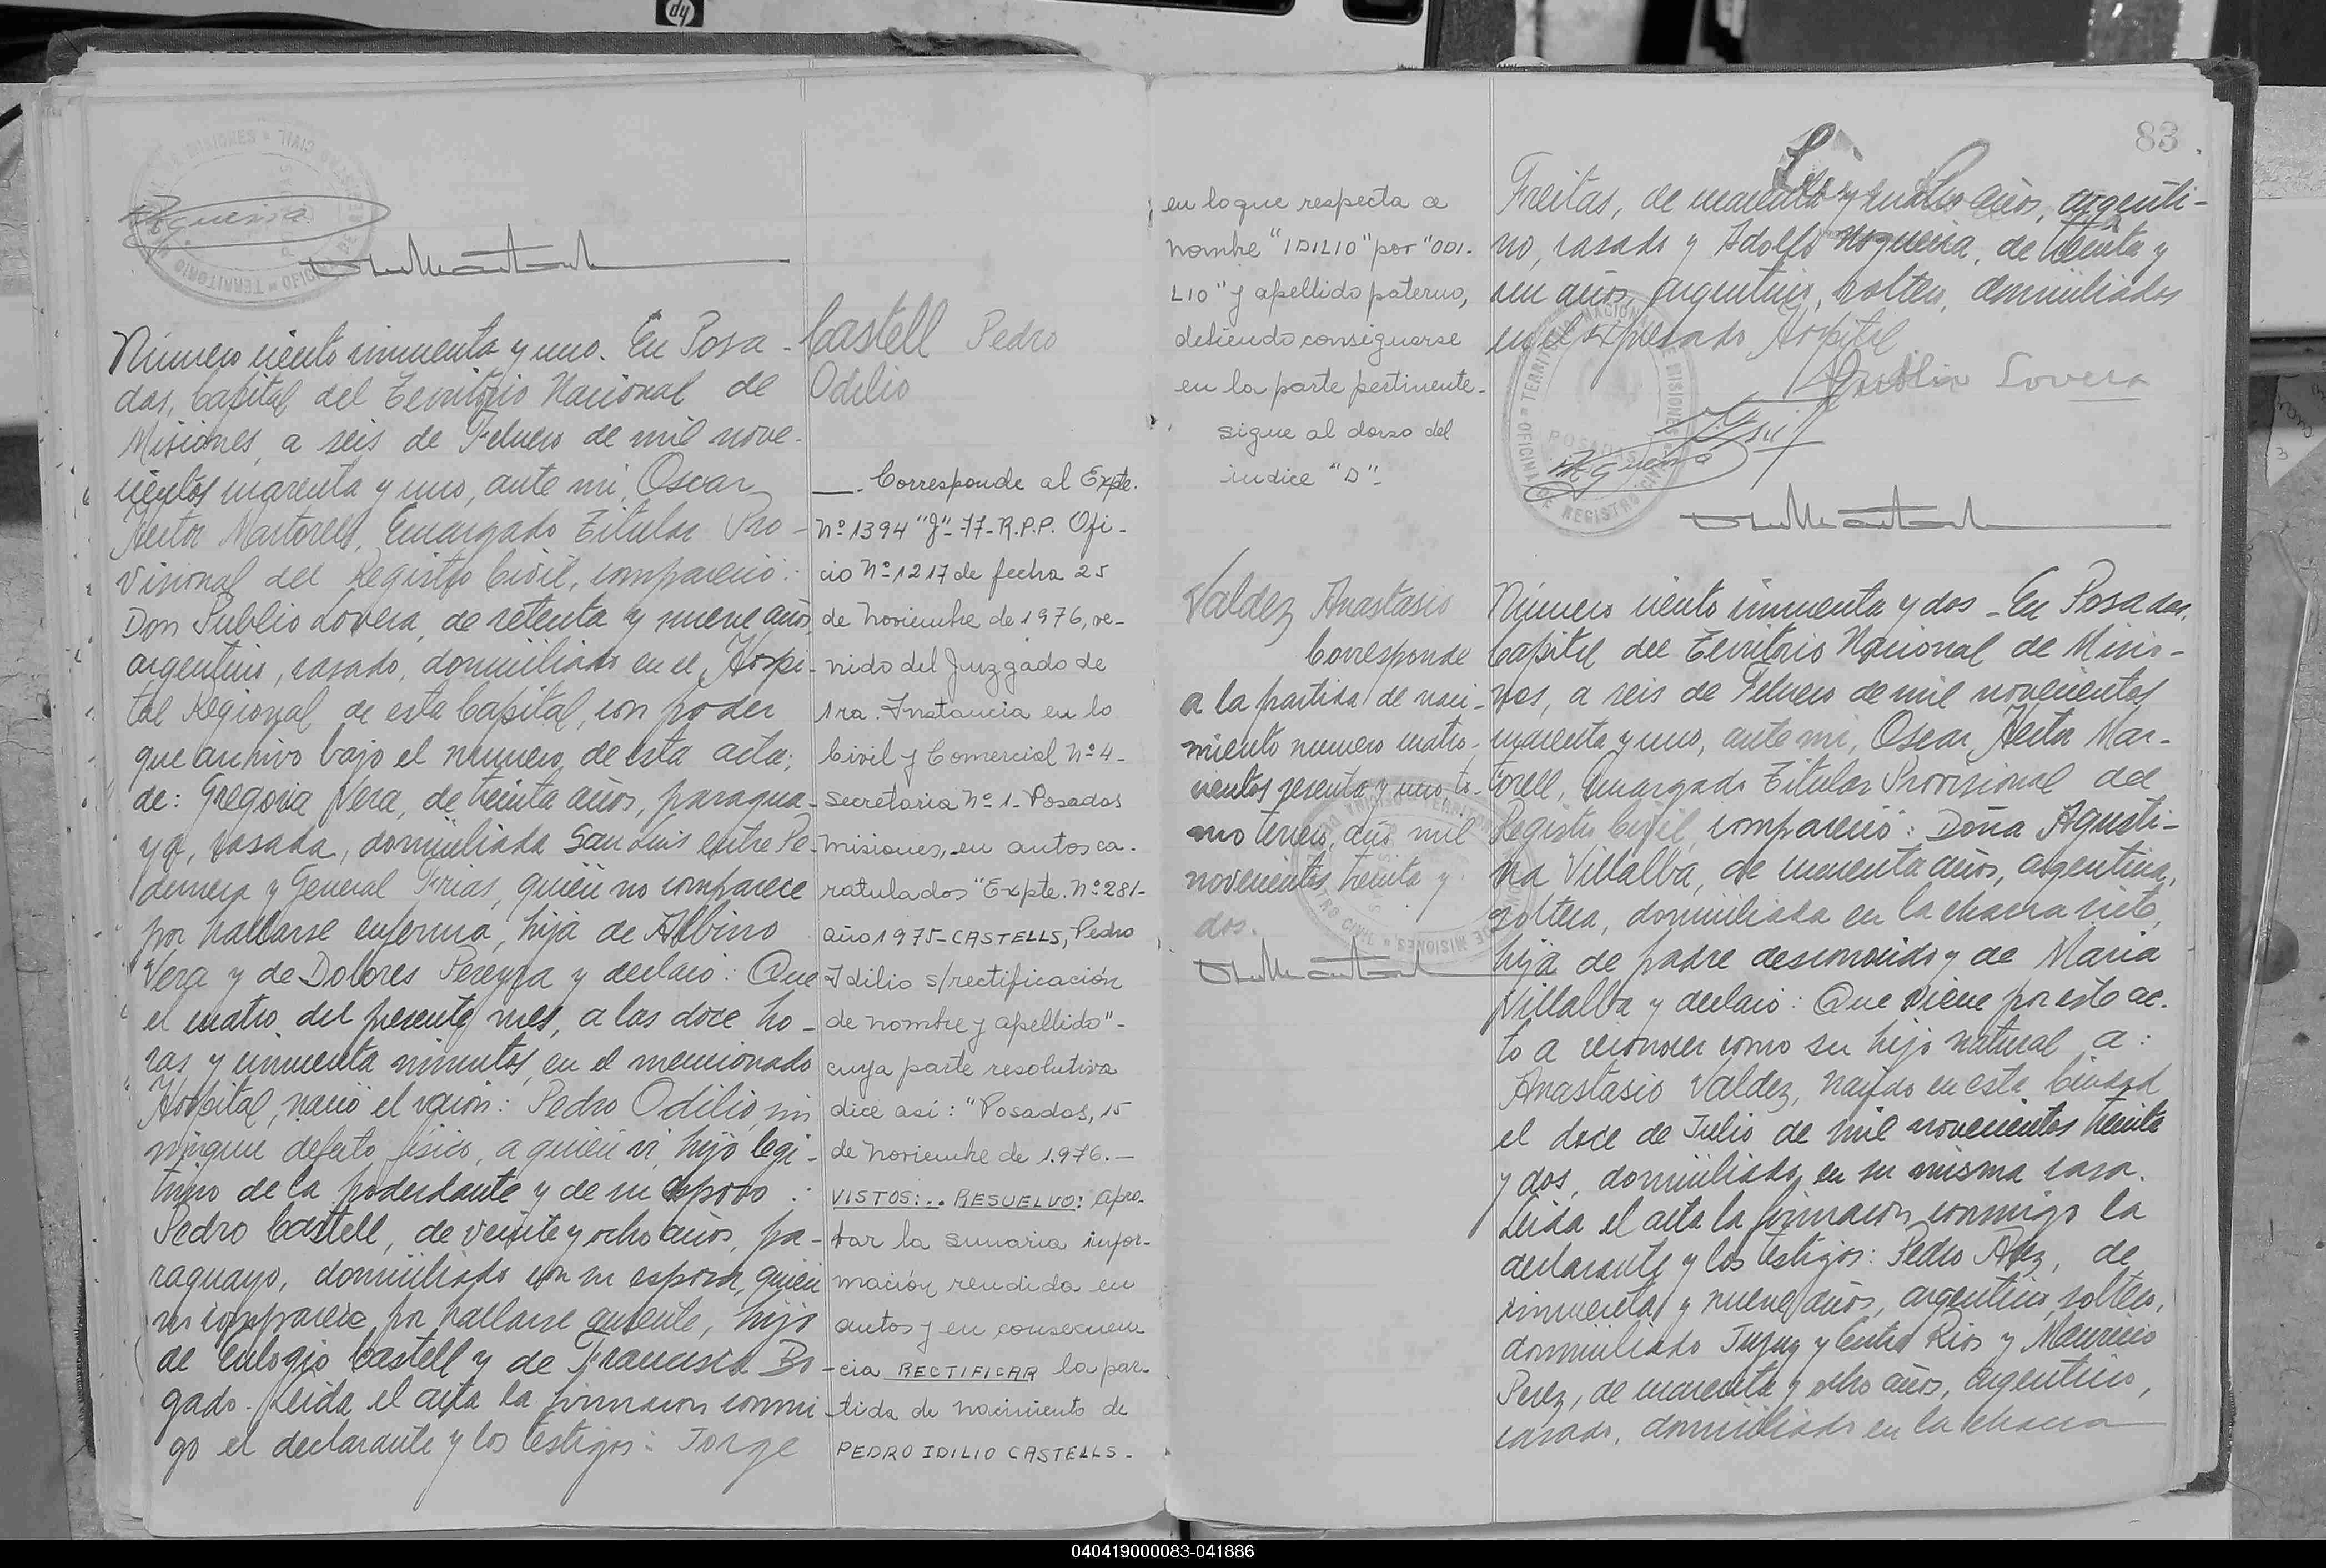 Número ciento cincuenta y uno. En Posa-
das, Capital del Territorio Nacional de
Misiones, a seis de Febrero de mil nove-
cientos cuarenta y uno, ante mi, Oscar
Hector Martorell, Encargado Titular Pro-
visional del Registro Civil, compareció:
Don Publio Lovera, de setenta y nueve años,
argentino, casado, domiciliado en el Hospi-
tal Regional de esta Capital, con poder
que archivo bajo el numero de esta acta;
de: Gregoria Vera, de treinta años, paragua-
ya, casada, domiciliada San Luis entre Pe-
dernera y General Frias, quien no comparece
por hallarse enferma, hija de Albino
Vera y de Dolores Pereyra y declaró: Que
el cuatro del presente mes, a las doce ho-
ras y cincuenta minutos, en el mencionado
Hospital, nació el varón: Pedro Odilio, sin
ningun defecto fisico, a quien vi, hijo legi-
timo de la poderdante y de su esposo:
Pedro Castell, de veinte y ocho años, pa-
raguayo, domiciliado con su esposa, quien
no comparece por hallarse ausente, hijo
de Eulogio Castell y de Francisca Bo-
gado. Leida el acta la firmaron conmi-
go el declarante y los testigos: Jorge
Castell Pedro
Odilio
__. Corresponde al Expte.
Nº 1394 "J"-77-R.P.P. Ofi-
cio Nº 1217 de fecha 25
de Noviembre de 1976, ve-
nido del Juzgado de
1ra. Instancia en lo
Civil y Comercial Nº 4-
Secretaria Nº 1- Posadas
Misiones, en autos ca-
ratulados "Expte. Nº 281-
año 1975- CASTELLS, Pedro
Idilio s/rectificación
de nombre y apellido"-
cuya parte resolutiva
dice asi: "Posadas, 15
de Noviembre de 1.976.-
VISTOS:.. RESUELVO: apro-
bar la sumaria infor-
mación rendida en
autos y en consecuen-
cia RECTIFICAR la par-
tida de nacimiento de
PEDRO IDILIO CASTELLS-
en lo que respecta a
nombre "IDILIO" por "ODI-
LIO" y apellido paterno,
debiendo consignarse
en la parte pertinente-
sigue al dorso del
indice "D"-
Valdez Anastasio
Corresponde
a la partida de naci-
miento numero cuatro-
cientos sesenta y uno, to-
mo tercero, año mil
novecientos treinta y
dos.
83
Freitas, de cuarenta y cuatro años, argenti-
no, casado y Adolfo Noguera, de treinta y
un años, argentino, soltero, domiciliados
en el expresado Hospital
Publio Lovera
Número ciento cincuenta y dos - En Posadas,
Capital del Territorio Nacional de Misio-
nes, a seis de Febrero de mil novecientos
cuarenta y uno, ante mi, Oscar Hector Mar-
torell, Encargado Titular Provisional del
Registro Civil, compareció: Doña Agusti-
na Villalba, de cincuenta años, argentina,
soltera, domiciliada en la chacra siete,
hija de padre desconocido y de Maria
Villalba y declaró: Que viene por este ac-
to a reconocer como su hijo natural a:
Anastasio Valdez, nacido en esta Ciudad
el doce de Julio de mil novecientos treinta
y dos, domiciliado en su misma casa.
Leida el acta la firmaron conmigo la
declarante y los testigos: Pedro Paez, de
cincuenta y nueve años, argentino, soltero,
domiciliado Jujuy y Entre Rios y Mauricio
Perez, de cuarenta y ocho años, argentino,
casado, domiciliado en la chacra
040419000083-041886